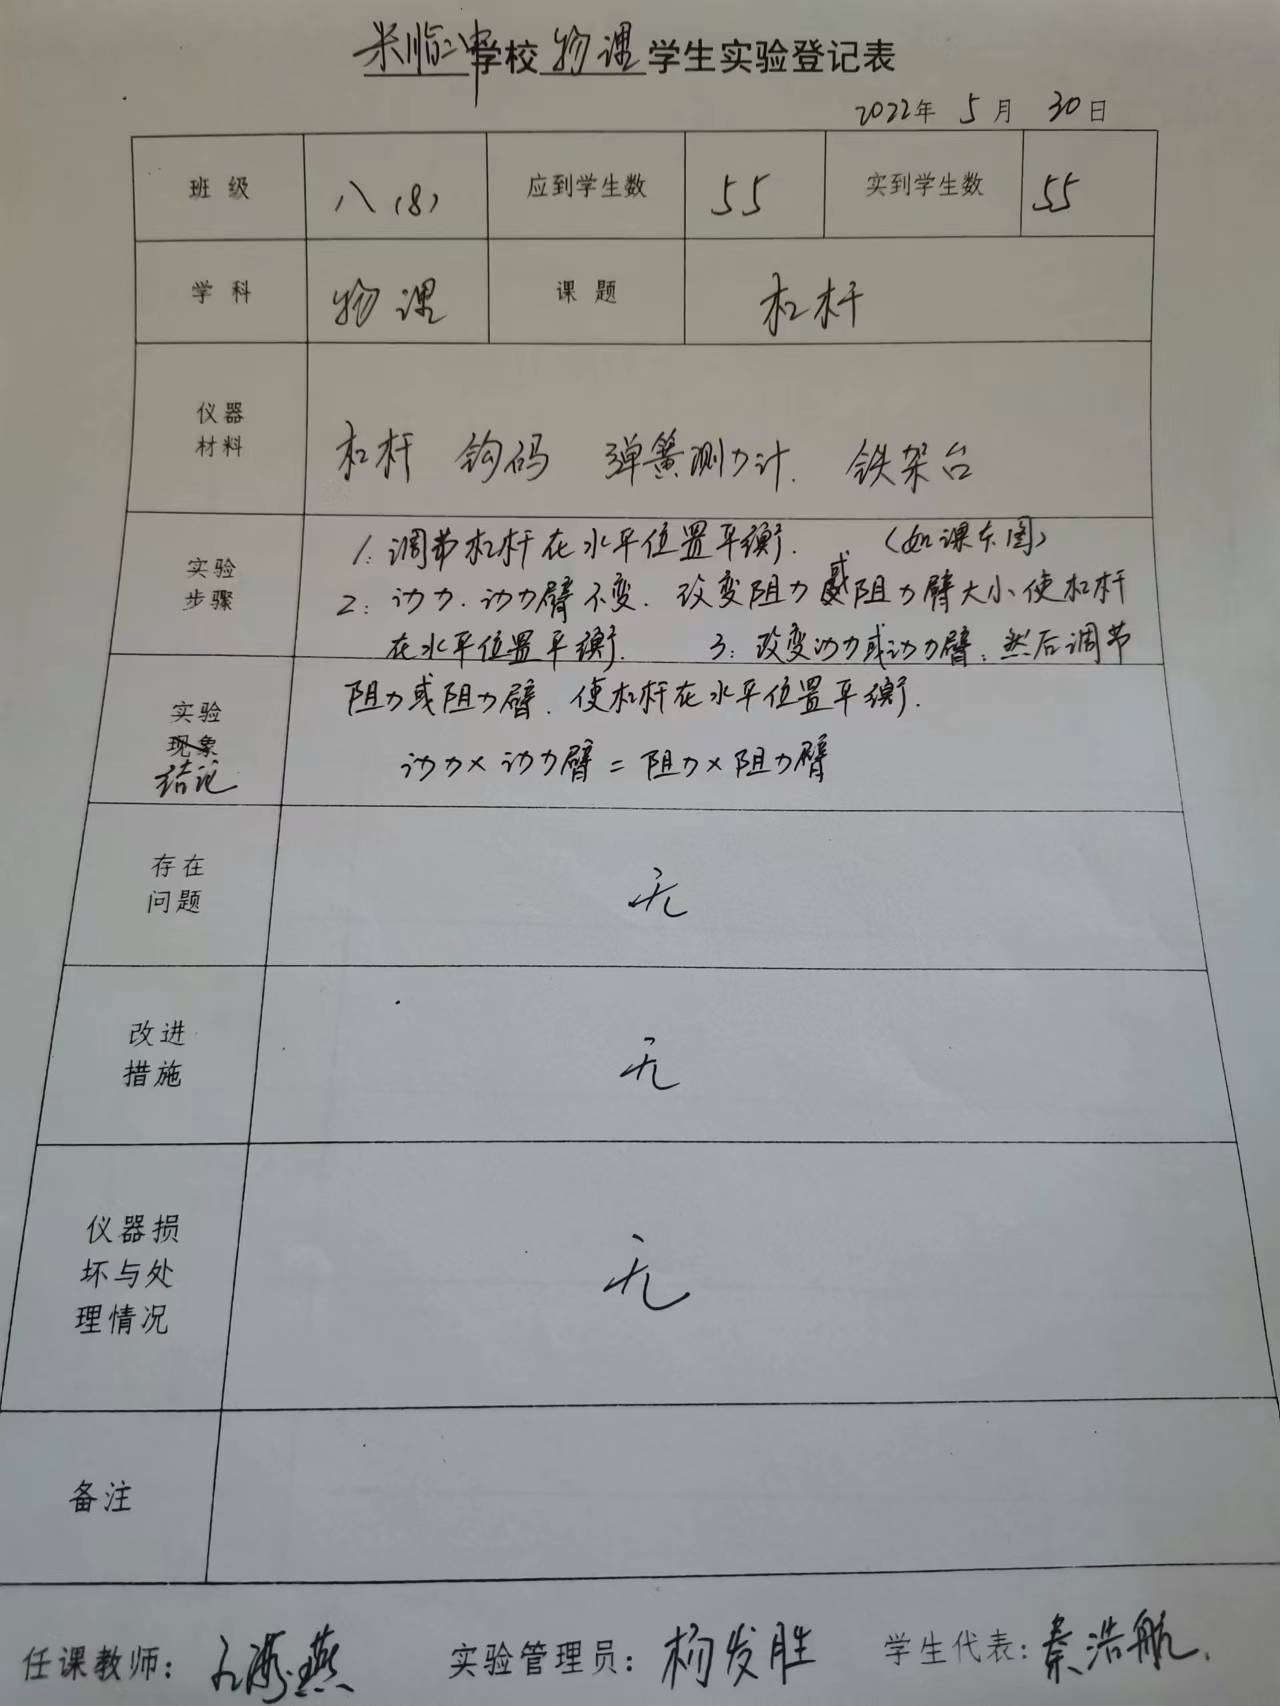 学校 物理 学生实验登记表
2022年 5月 30日
班级 八(8) 应到学生数 55 实到学生数 55
学科 物理 课题 杠杆
仪器
材料
杠杆 钩码 弹簧测力计. 铁架台
实验
步骤
1. 调节杠杆在水平位置平衡. (如课本图)
2: 动力.动力臂不变. 改变阻力或阻力臂大小使杠杆
在水平位置平衡. 3: 改变动力或动力臂.然后调节
阻力或阻力臂.使杠杆在水平位置平衡.
实验
现象
结论
动力×动力臂=阻力×阻力臂
存在
问题
无
改进
措施
无
仪器损
坏与处
理情况
无
备注
任课教师: 实验管理员: 杨发胜 学生代表: 秦浩航.